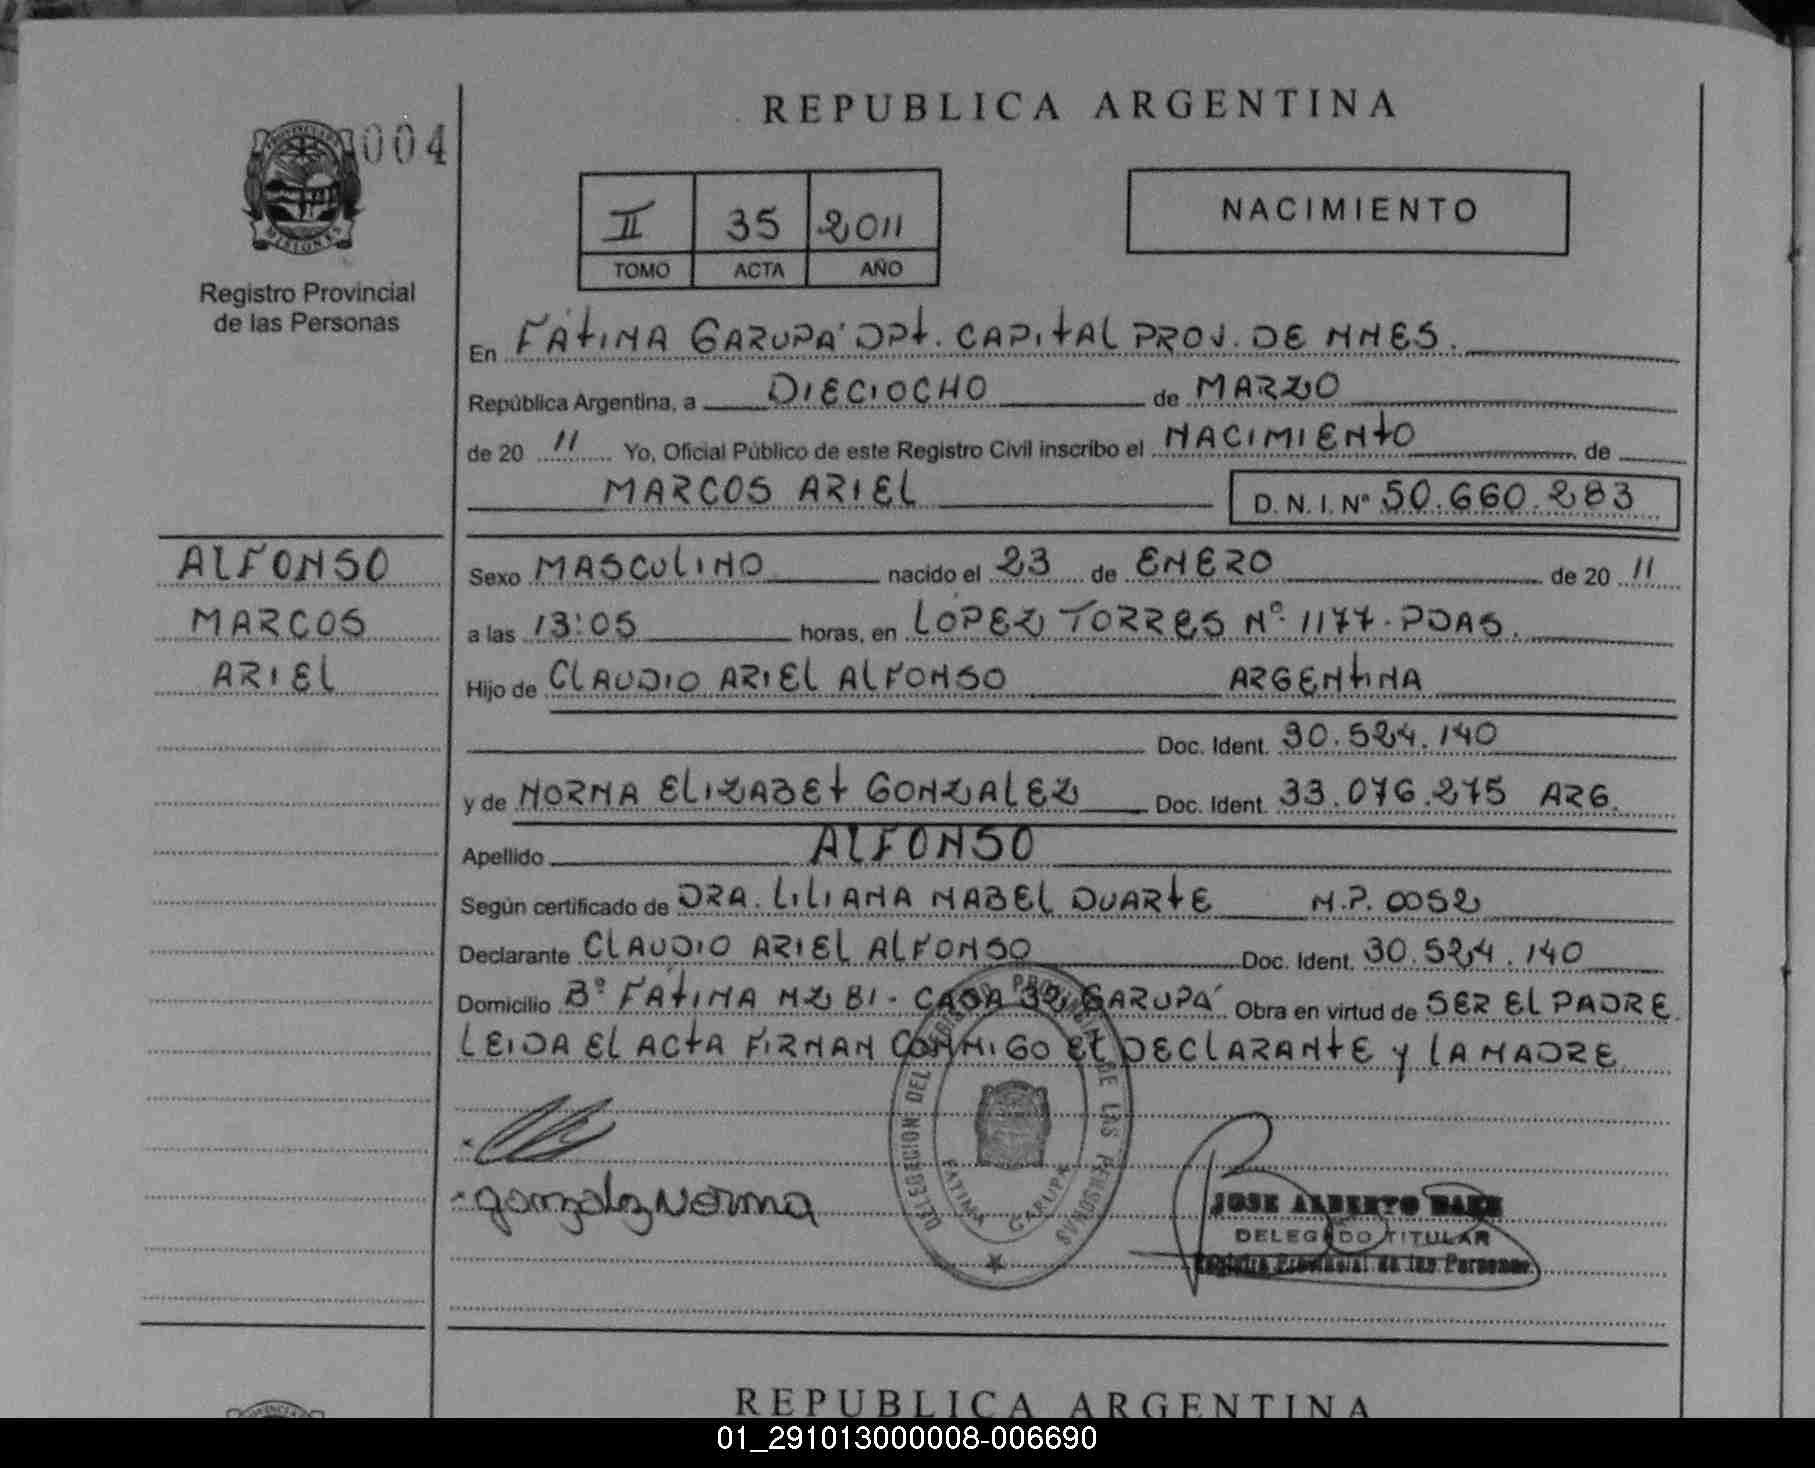 REPUBLICA ARGENTINA
004
PROVINCIA DE MISIONES
Registro Provincial
de las Personas
II 35 2011
TOMO ACTA AÑO
NACIMIENTO
En FÁTIMA GARUPA' DPT. CAPITAL PROV. DE MNES.
República Argentina, a DIECIOCHO de MARZO
de 20 11 Yo, Oficial Público de este Registro Civil inscribo el NACIMIENTO de
MARCOS ARIEL D. N. I. Nº 50.660.283
ALFONSO
MARCOS
ARIEL
Sexo MASCULINO nacido el 23 de ENERO de 20 11
a las 13:05 horas, en LÓPEZ TORRES Nº 1177 - PDAS.
Hijo de CLAUDIO ARIEL ALFONSO ARGENTINA
Doc. Ident. 30.524.140
y de NORMA ELIZABET GONZALEZ Doc. Ident. 33.076.275 ARG.
Apellido ALFONSO
Según certificado de DRA. LILIANA MABEL DUARTE M.P. 0052
Declarante CLAUDIO ARIEL ALFONSO Doc. Ident. 30.524.140
Domicilio Bº FÁTIMA MZ 81 - CASA 32, GARUPA' Obra en virtud de SER EL PADRE
LEIDA EL ACTA FIRMAN CONMIGO EL DECLARANTE Y LA MADRE
DELEGACION DEL REGISTRO PROVINCIAL DE LAS PERSONAS
FATIMA GARUPA
gonzalez Norma
JOSE ALBERTO BAEZ
DELEGADO TITULAR
Registro Provincial de las Personas
REPUBLICA ARGENTINA
01_291013000008-006690